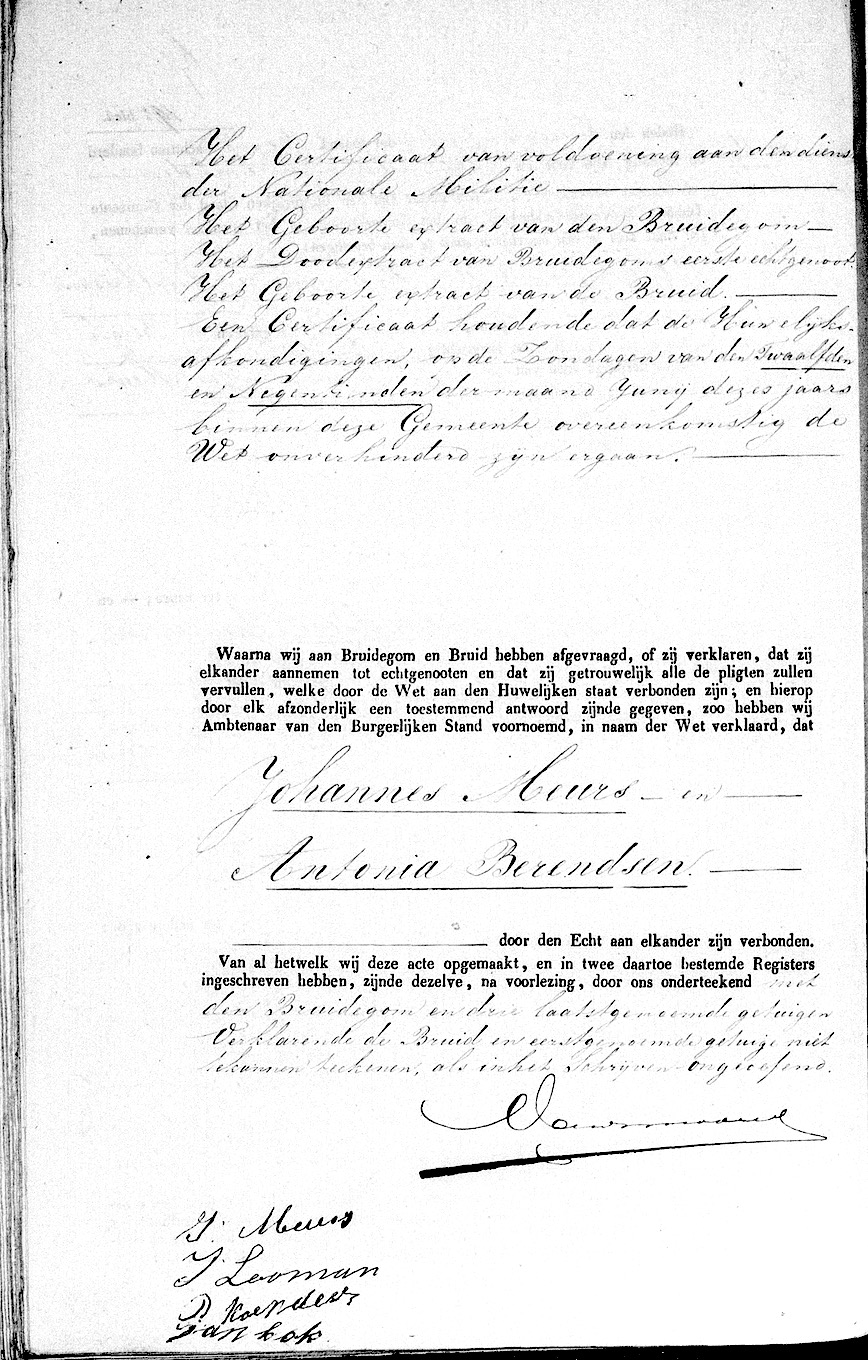 Het Certificaat van voldoening aan den diens
der Nationale Militie
Het Geboorte extract van den Bruidegom
Het Doodextract van Bruidegoms eerste echtgenoot.
Het Geboorte extract van de Bruid.
Een Certificaat houdende dat de Huwelijks-
afkondigingen, op de Zondagen van den Twaalfden
en Negentienden der maand Junij dezes jaars
binnen deze Gemeente overeenkomstig de
Wet onverhinderd zijn ergaan.
Waarna wij aan Bruidegom en Bruid hebben afgevraagd, of zij verklaren, dat zij
elkander aannemen tot echtgenooten en dat zij getrouwelijk alle de pligten zullen
vervullen, welke door de Wet aan den Huwelijken staat verbonden zijn; en hierop
door elk afzonderlijk een toestemmend antwoord zijnde gegeven, zoo hebben wij
Ambtenaar van den Burgerlijken Stand voornoemd, in naam der Wet verklaard, dat
Johannes Meurs — en
Antonia Berendsen.
door den Echt aan elkander zijn verbonden.
Van al hetwelk wij deze acte opgemaakt, en in twee daartoe bestemde Registers
ingeschreven hebben, zijnde dezelve, na voorlezing, door ons onderteekend met
den Bruidegom en drie laatstgenoemde getuigen
Verklarende de Bruid en eerstgenoemde getuige niet
te kannen teekenen, als in het Schrijven ongeoefend.
J. Meurs
J Looman
Jan kok